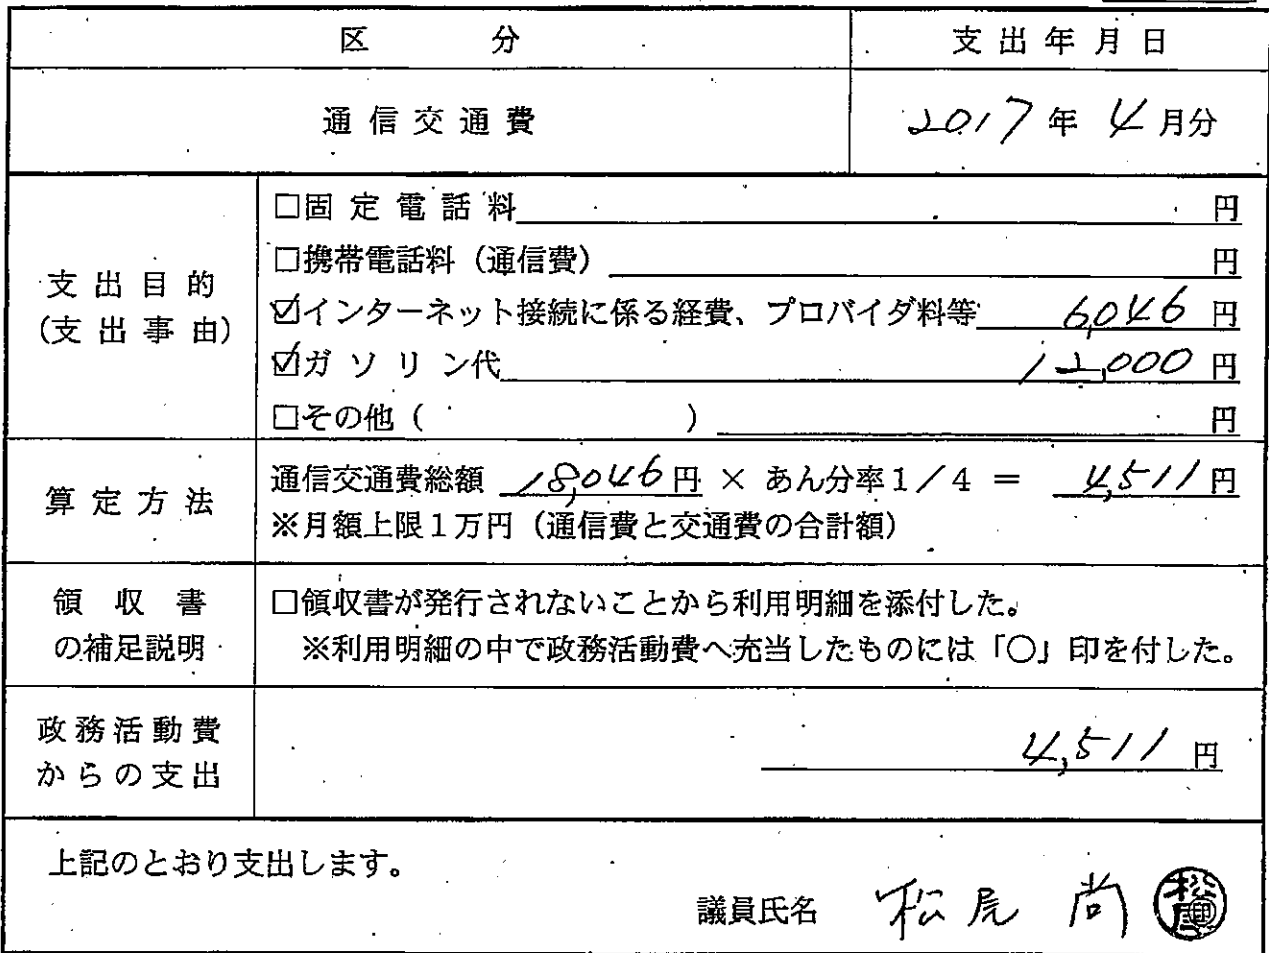 区 分 支出年月日
通信交通費 2017年 4月分
支出目的
(支出事由)
□固定電話料 円
□携帯電話料(通信費) 円
☑インターネット接続に係る経費、プロバイダ料等 6,046 円
☑ガソリン代 12,000 円
□その他( ) 円
算定方法
通信交通費総額 18,046円 × あん分率1/4 = 4,511円
※月額上限1万円(通信費と交通費の合計額)
領収書
の補足説明
□領収書が発行されないことから利用明細を添付した。
※利用明細の中で政務活動費へ充当したものには「○」印を付した。
政務活動費
からの支出
4,511 円
上記のとおり支出します。
議員氏名 松尾 尚